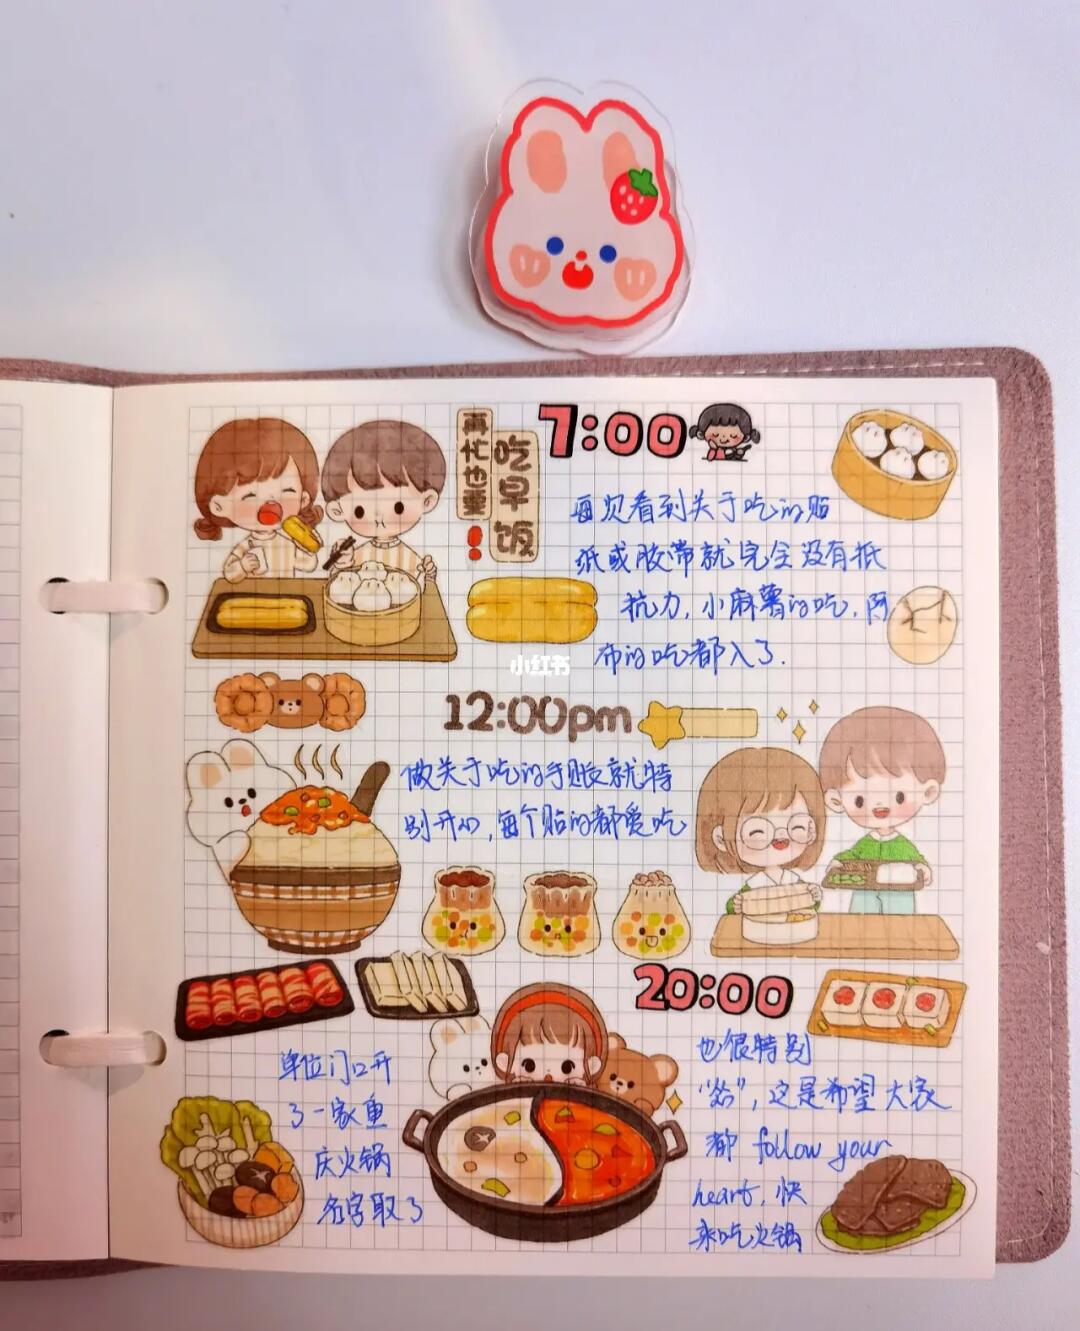 再忙也要
吃早饭
!
7:00
再次看到关于吃的贴
纸或胶带就完全没有抵
抗力,小麻薯的吃,阿
布的吃都入了.
小红书
12:00pm
做关于吃的手账就特
别开心,每个贴的都爱吃
20:00
单位门口开
了一家重
庆火锅
名字取了
也很特别
"怂",这是希望大家
都 follow your
heart,快
来吃火锅